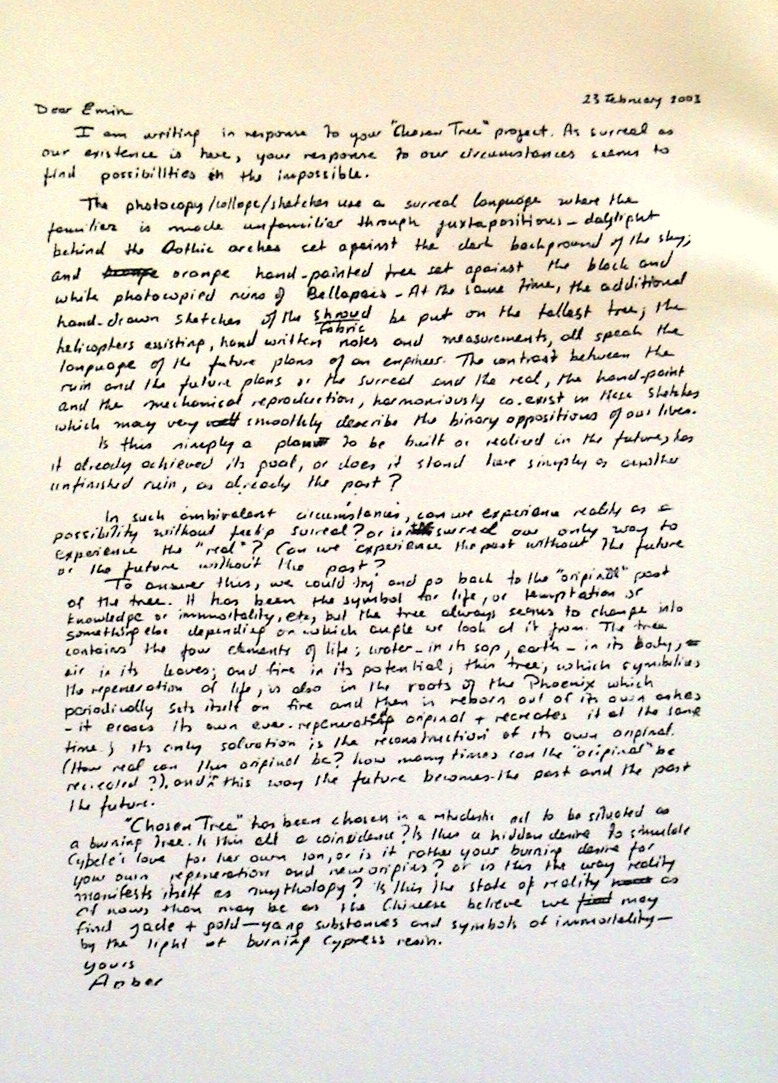 23 February 2003
Dear Emin
I am writing in response to your "Chosen Tree" project. As surreal as
our existence is here, your response to our circumstances seems to
find possibilities in the impossible.
The photocopy/collage/sketches use a surreal language where the
familiar is made unfamiliar through juxtapositions - daylight
behind the Gothic arches set against the dark background of the sky;
and orange hand-painted tree set against the black and
white photocopied ruins of Bellapais - At the same time, the additional
hand-drawn sketches of the shroud be put on the tallest tree; the
fabric
helicopters assisting, hand written notes and measurements, all speak the
language of the future plans of an engineer. The contrast between the
ruin and the future plans or the surreal and the real, the hand-paint
and the mechanical reproduction, harmoniously co-exist in these sketches
which may very smoothly describe the binary oppositions of our lives.
Is this simply a plan to be built or realized in the future, has
it already achieved its goal, or does it stand here simply as another
unfinished ruin, as already the past?
In such ambivalent circumstances, can we experience reality as a
possibility without feeling surreal? or is surreal our only way to
experience the "real"? Can we experience the past without the future
or the future without the past?
To answer this, we could try and go back to the "original" past
of the tree. It has been the symbol for life, or temptation or
knowledge or immortality, etc, but the tree always seems to change into
something else depending on which angle we look at it from. The tree
contains the four elements of life; water - in its sap, earth - in its body,
air in its leaves; and fire in its potential; this tree, which symbolizes
the regeneration of life, is also in the roots of the Phoenix which
periodically sets itself on fire and then is reborn out of its own ashes
- it erases its own ever-regenerating original + recreates it at the same
time. its only salvation is the reconstruction of its own original.
(How real can this original be? how many times can the "original" be
recreated?). and this way the future becomes the past and the past
the future.
"Chosen Tree" has been chosen in a not to be situated as
a burning tree. Is this all a coincidence? Is this a hidden desire to simulate
Cybele's love for her own son, or is it rather your burning desire for
your own regeneration and new origins? or is this the way reality
manifests itself as mythology? Is this the state of reality as
of now then may be as the Chinese believe we may
find jade + gold - yang substances and symbols of immortality -
by the light of burning Cypress resin.
yours
Anber